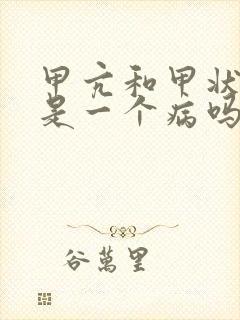 甲亢和甲状
是一个病吗
谷萬里